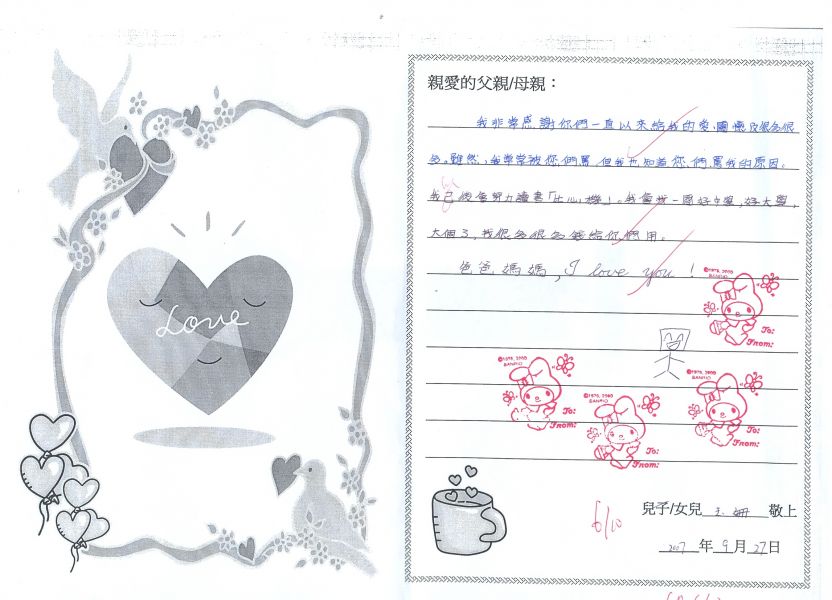 Love
親愛的父親/母親：
我非常感謝你們一直以來給我的愛,關懷及很多很
多。雖然,我常常被您們罵,但我也知道您們罵我的原因。
我已後會努力讀書「比心機」。我會找一間好中學,好大學,
大個了,我很多很多錢給你們用。
爸爸,媽媽,I love you!
©1976, 2000
SANRIO
To:
From:
©1976, 2000
SANRIO
To:
From:
©1976, 2000
SANRIO
To:
From:
©1976, 2000
SANRIO
To:
From:
6/10
兒子/女兒 玉姍 敬上
2007年9月27日